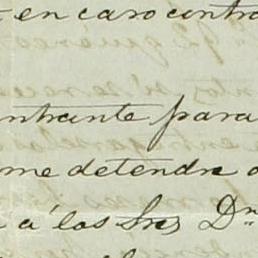 en caso contra
ntrante para
me detendre
a á los Sres Dn